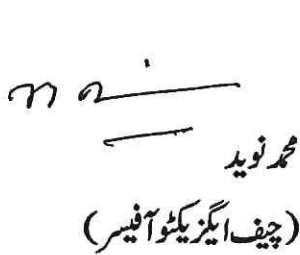 محمد نوید
(چیف ایگزیکٹو آفیسر)